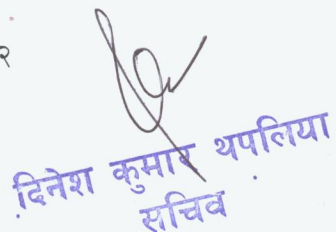 २
दिनेश कुमार थपलिया
सचिव